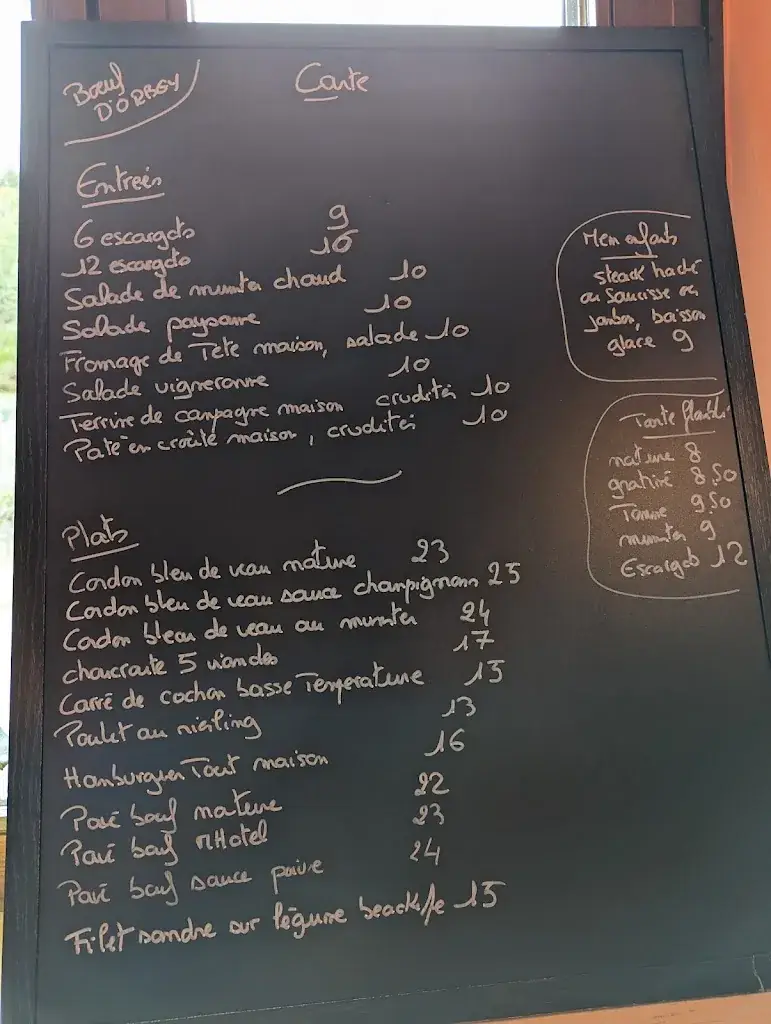 Bœuf
D'ORBEY
Carte
Entrées
6 escargots 9
12 escargots 16
Salade de munster chaud 10
Salade paysanne 10
Fromage de Tête maison, salade 10
Salade vigneronne 10
Terrine de campagne maison crudités 10
Pâté en croûte maison, crudités 10
Plats
Cordon bleu de veau nature 23
Cordon bleu de veau sauce champignons 25
Cordon bleau de veau au munster 24
choucroute 5 viandes 17
Carré de cochon basse Température 15
Poulet au riesling 13
Hamburguer Tout maison 16
Pavé bœuf nature 22
Pavé bœuf mHotel 23
Pavé bœuf sauce poivre 24
Filet sandre sur légume 15
Menu enfants
steack haché
ou Saucisse ou
Jambon, boisson
glace 9
Tarte flambée
nature 8
gratiné 8,50
Tomme 9,50
munster 9
Escargots 12